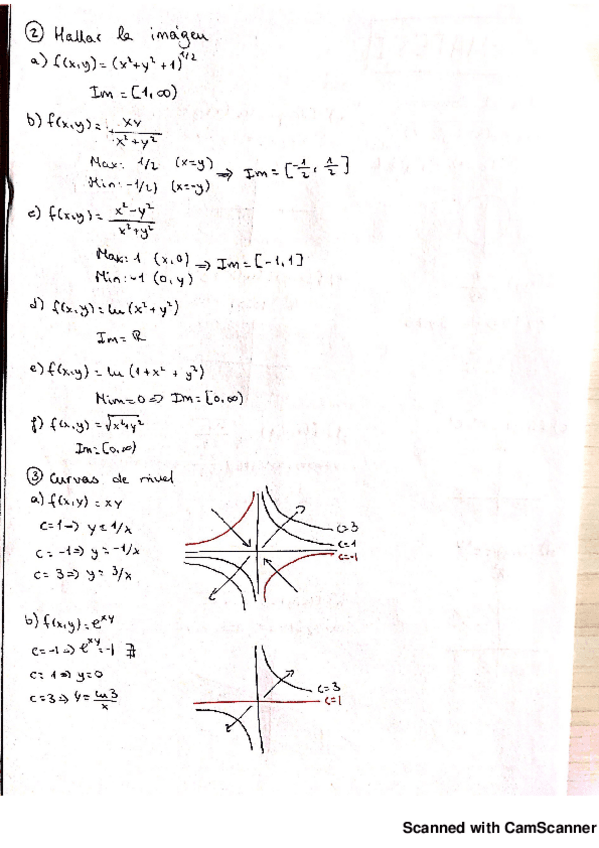 ② Hallar la imágen
a) f(x,y) = (x²+y²+1)^1/2
Im = [1,∞)
b) f(x,y) = xy/(x²+y²)
Max: 1/2 (x=y)
Min: -1/2 (x=-y) ⇒ Im = [-1/2, 1/2]
c) f(x,y) = (x²-y²)/(x²+y²)
Max: 1 (x,0) ⇒ Im = [-1,1]
Min: -1 (0,y)
d) f(x,y) = ln(x²+y²)
Im = ℝ
e) f(x,y) = ln(1+x²+y²)
Mim=0 ⇒ Im=[0,∞)
f) f(x,y) = √x²+y²
Im=[0,∞)
③ Curvas de nivel
a) f(x,y) = xy
c=1 ⇒ y=1/x
c=-1 ⇒ y=-1/x
c=3 ⇒ y=3/x
c=3
c=1
c=-1
b) f(x,y) = e^xy
c=-1 ⇒ e^xy=-1 ∄
c=1 ⇒ y=0
c=3 ⇒ y=ln3/x
c=3
c=1
Scanned with CamScanner